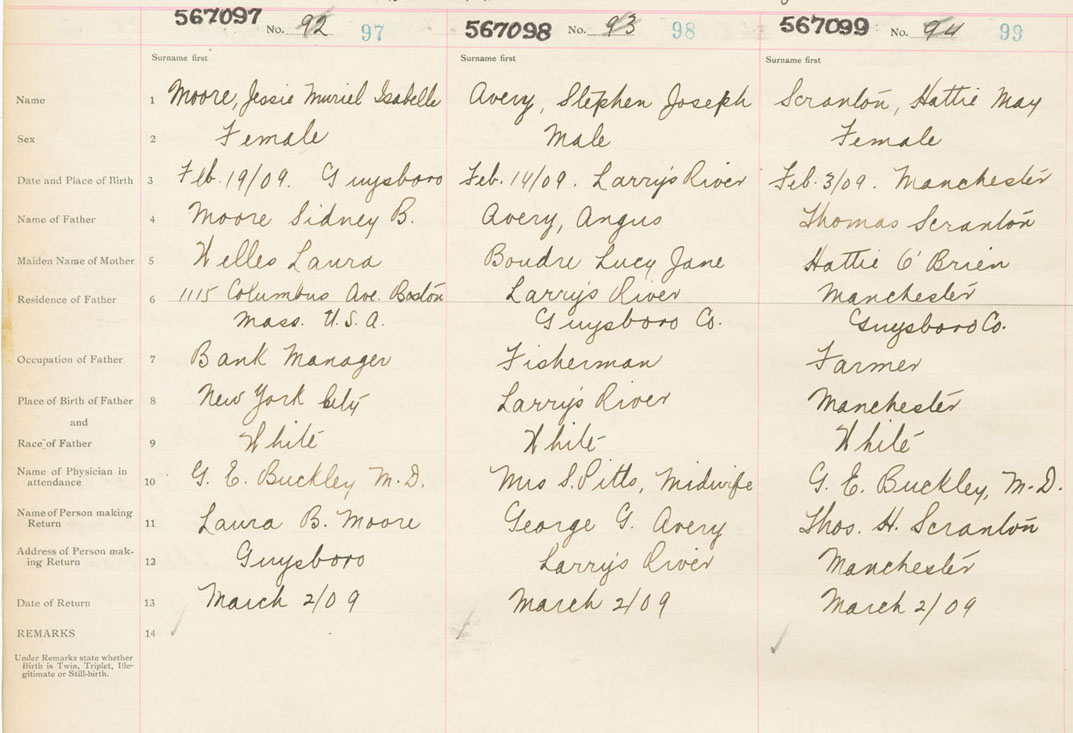 567097 No. 92 97 567098 No. 93 98 567099 No. 94 99
Surname first Surname first Surname first
Name 1 Moore, Jessie Muriel Isabelle Avery, Stephen Joseph Scranton, Hattie May
Sex 2 Female Male Female
Date and Place of Birth 3 Feb. 19/09. Guysboro Feb. 14/09. Larry's River Feb. 3/09. Manchester
Name of Father 4 Moore Sidney B. Avery, Angus Thomas Scranton
Maiden Name of Mother 5 Welles Laura Boudre Lucy Jane Hattie O'Brien
Residence of Father 6 1115 Columbus Ave. Boston Larry's River Manchester
Mass. U.S.A. Guysboro Co. Guysboro Co.
Occupation of Father 7 Bank Manager Fisherman Farmer
Place of Birth of Father 8 New York City Larry's River Manchester
and
Race of Father 9 White White White
Name of Physician in
attendance 10 G. E. Buckley M.D. Mrs S. Pitts, Midwife G. E. Buckley, M.D.
Name of Person making
Return 11 Laura B. Moore George G. Avery Thos. H. Scranton
Address of Person mak-
ing Return 12 Guysboro Larry's River Manchester
Date of Return 13 March 2/09 March 2/09 March 2/09
REMARKS 14
Under Remarks state whether
Birth is Twin, Triplet, Ille-
gitimate or Still-birth.